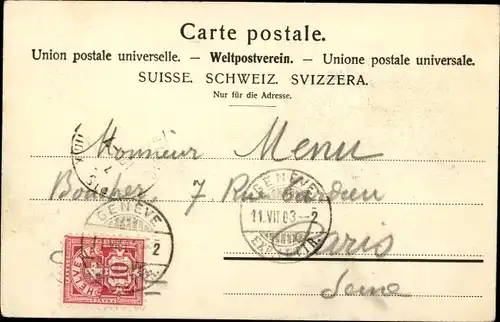 Carte postale.
Union postale universelle. — Weltpostverein. — Unione postale universale.
SUISSE. SCHWEIZ. SVIZZERA.
Nur für die Adresse.
Monsieur Menu
Boucher, 7 Rue
Paris
Seine
GENÈVE
11.VII.03–2
EXP. LETTR.
GENÈVE
2
HELVETIA
10